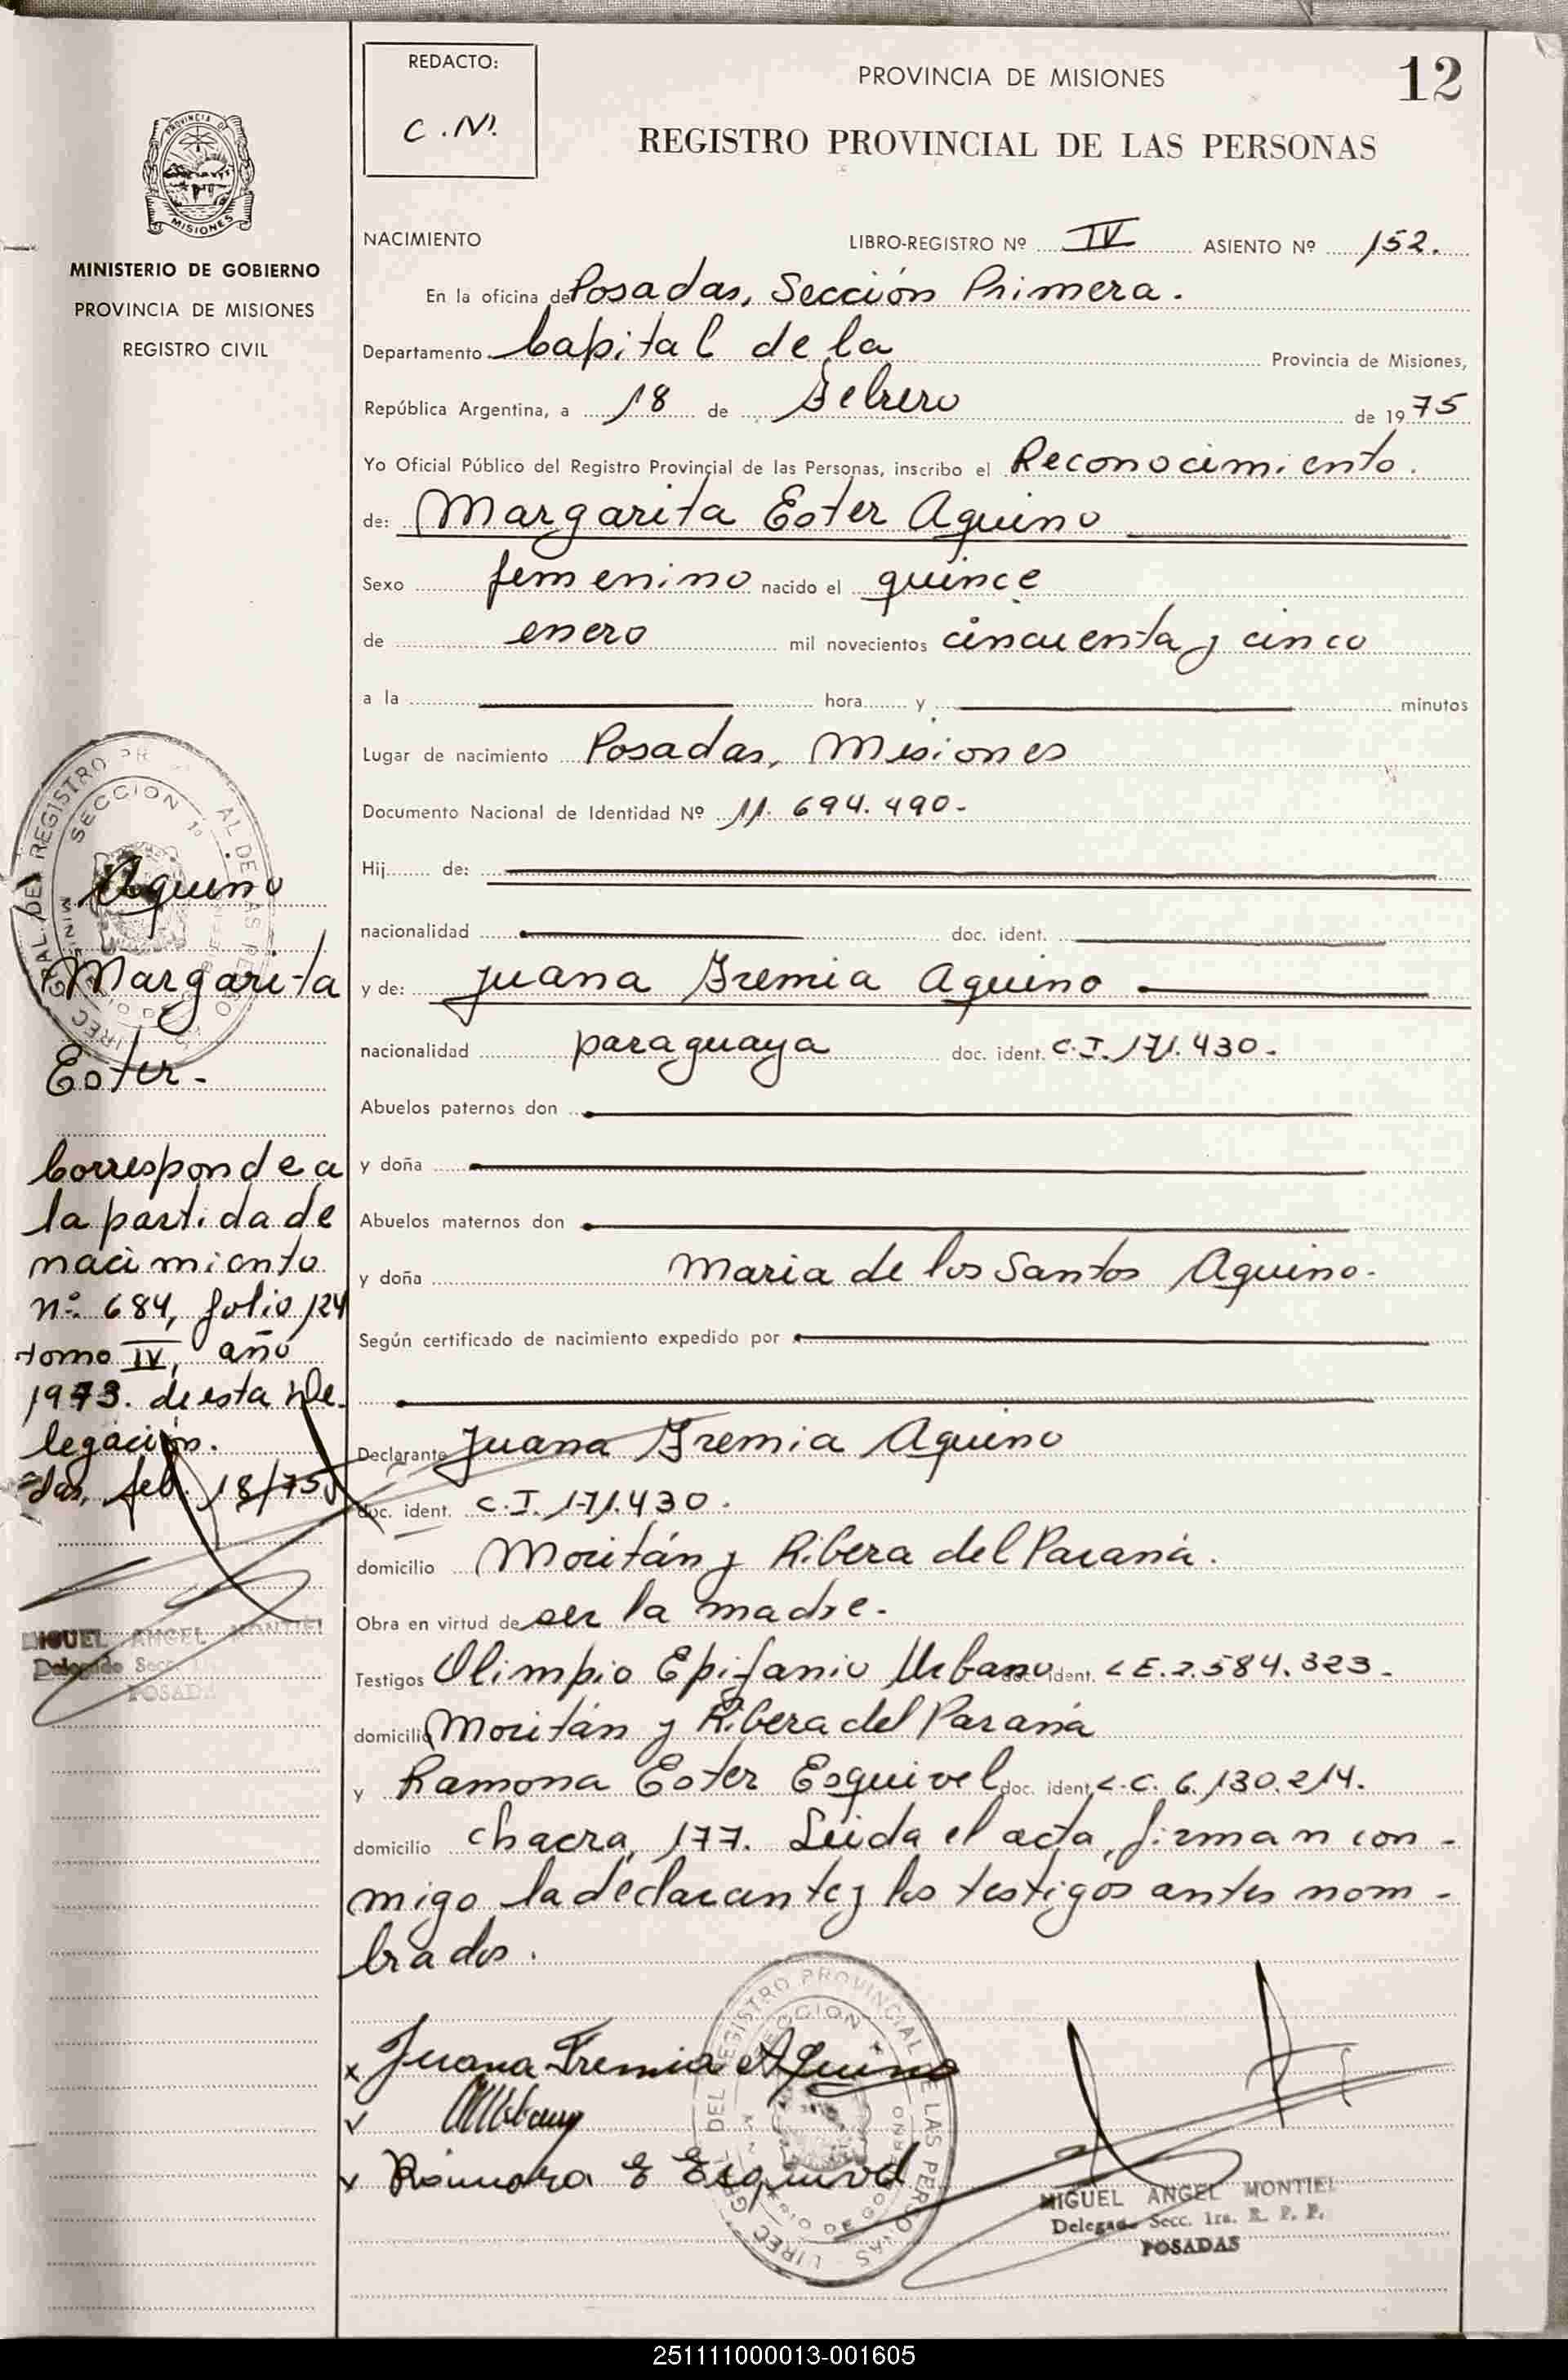 REDACTO:
C.N.
PROVINCIA DE MISIONES
12
REGISTRO PROVINCIAL DE LAS PERSONAS
PROVINCIA DE
MISIONES
MINISTERIO DE GOBIERNO
PROVINCIA DE MISIONES
REGISTRO CIVIL
NACIMIENTO LIBRO-REGISTRO Nº IV ASIENTO Nº 152.
En la oficina de Posadas, Sección Primera.
Departamento Capital de la Provincia de Misiones,
República Argentina, a 18 de Febrero de 1975
Yo Oficial Público del Registro Provincial de las Personas, inscribo el Reconocimiento.
de: Margarita Ester Aquino
Sexo femenino nacido el quince
de enero mil novecientos cincuenta y cinco
a la hora y minutos
Lugar de nacimiento Posadas, Misiones
Documento Nacional de Identidad Nº 11.694.490-
Hij de:
nacionalidad doc. ident.
y de: Juana Fremia Aquino
nacionalidad paraguaya doc. ident. C.I. 171.430-
Abuelos paternos don
y doña
Abuelos maternos don
y doña Maria de los Santos Aquino.
Según certificado de nacimiento expedido por
Declarante Juana Fremia Aquino
doc. ident. C.I. 171.430.
domicilio Moritán y Ribera del Paraná.
Obra en virtud de ser la madre.
Testigos Olimpio Epifanio Urbano doc. ident. L.E. 2.584.323-
domicilio Moritán y Ribera del Paraná
y Ramona Ester Esquivel doc. ident. L.C. 6.130.214.
domicilio chacra, 177. Leida el acta, firman con-
migo la declarante y los testigos antes nom-
brados.
x Juana Fremia Aquino
Ramona E Esquivel
MIGUEL ANGEL MONTIEL
Delegado Secc. 1ra. R. P. P.
POSADAS
SECCION 1º
Aquino
Margarita
Ester-
Corresponde a
la partida de
nacimiento
nº. 684, folio 124
tomo IV, año
1973. de esta De-
legación.
das, feb. 18/75
MIGUEL ANGEL MONTIEL
Delegado Secc.
POSADA
251111000013-001605